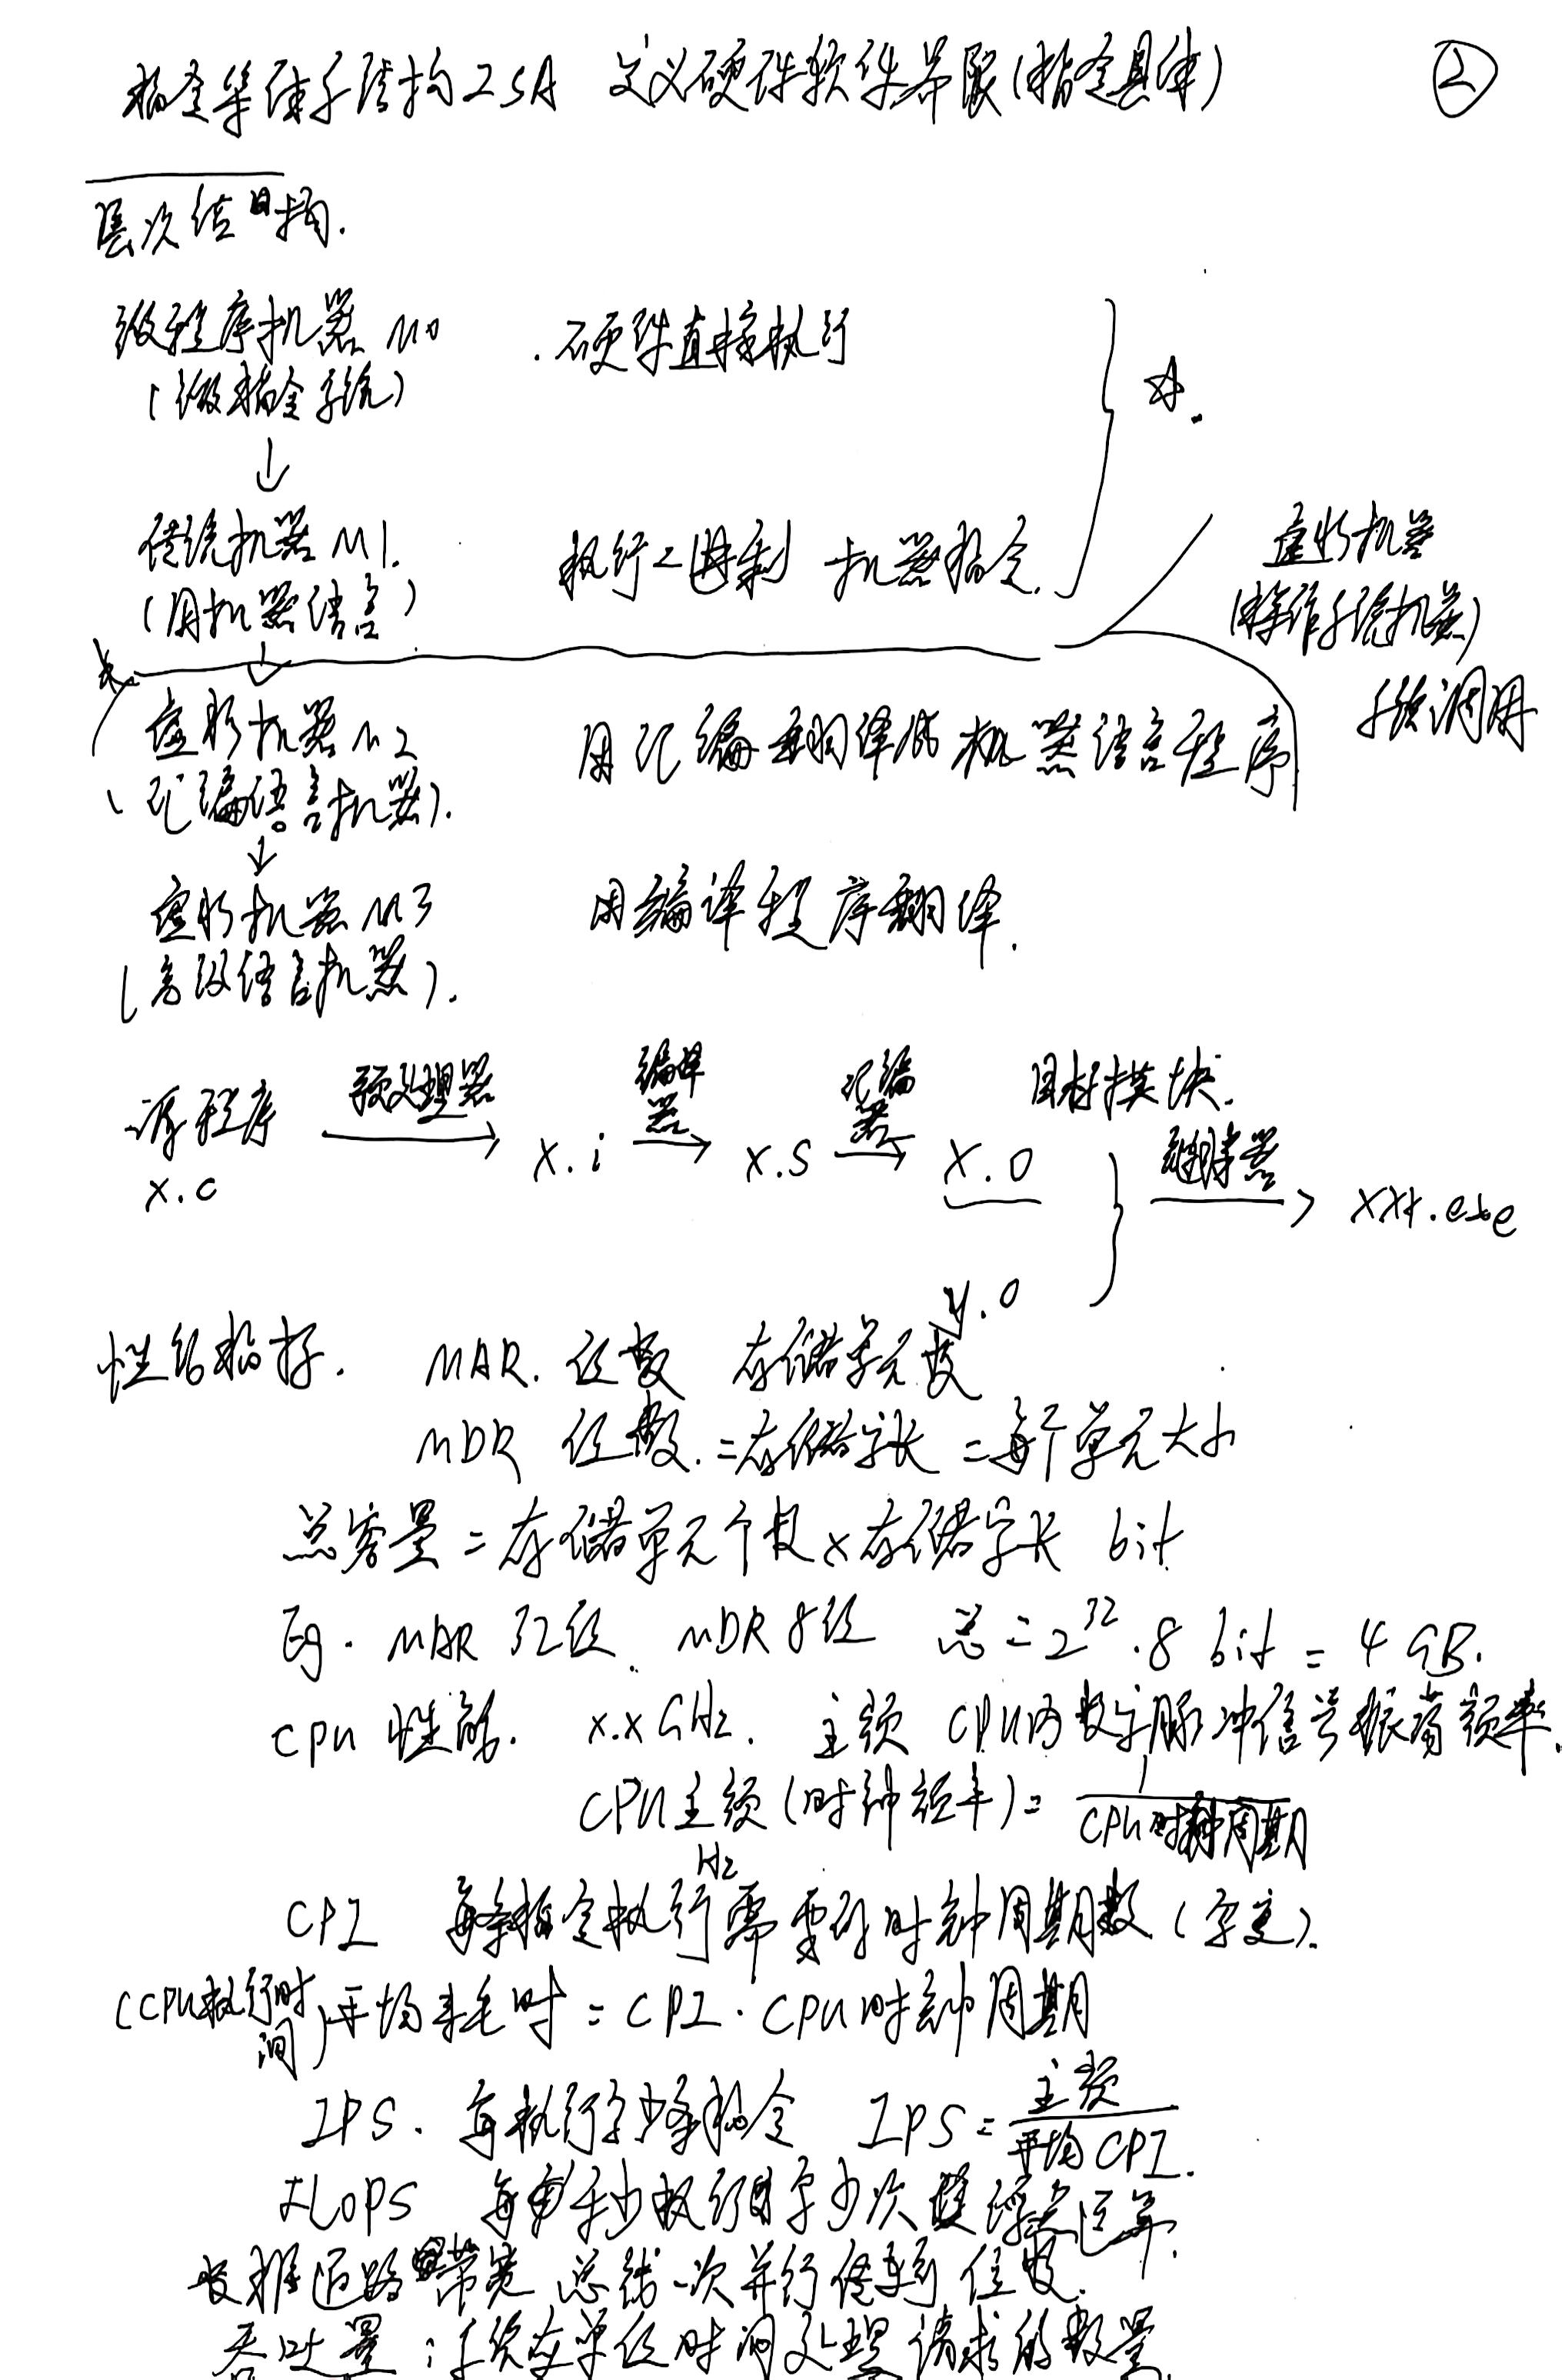 指令集体系结构 ISA 定义硬件软件界限(指令具体) ②
层次结构.
微程序机器 M0 . 硬件直接执行
(微指令系统)
↓
传统机器 M1. 执行二进制 机器指令.
(用机器语言)
虚拟机器
(操作系统机器)
系统调用
↓
虚拟机器 M2 用汇编翻译成机器语言程序
(汇编语言机器).
↓
虚拟机器 M3 用编译程序翻译.
(高级语言机器).
源程序 预处理器 编译器 汇编器 目标模块.
x.c → x.i → x.s → x.o 链接器 → xxx.exe
y.o
性能指标. MAR. 位数 存储单元数
MDR 位数. = 存储字长 = 每个单元大小
总容量 = 存储单元个数 × 存储字长 bit
Eg. MAR 32位. MDR 8位 总 = 2^32 . 8 bit = 4 GB.
CPU 性能. x.x GHz. 主频 CPU内数字脉冲信号振荡频率.
CPU主频(时钟频率) = 1/CPU时钟周期
Hz
CPI 每条指令执行需要的时钟周期数 (可变).
(CPU执行时间) 平均耗时 = CPI . CPU时钟周期
IPS. 每执行多少条指令 IPS = 主频/平均CPI.
FLOPS 每秒执行多少次浮点运算.
数据通路带宽 总线一次并行传输位数.
吞吐量: 系统在单位时间处理请求的数量